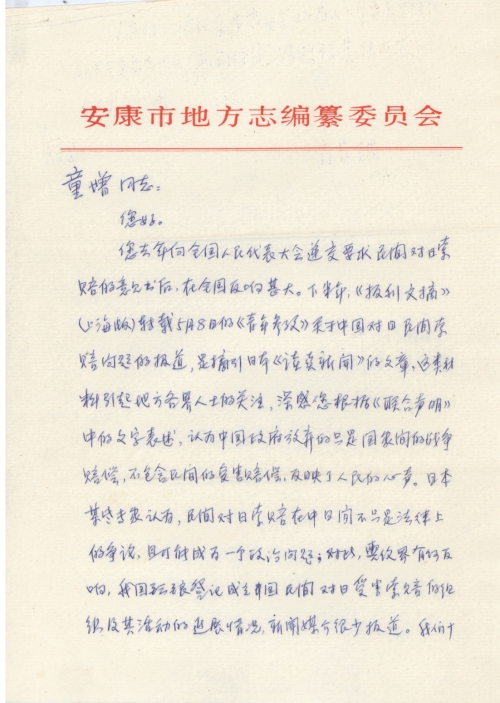 安康市地方志编纂委员会
童增同志：
您好。
您去年向全国人民代表大会递交要求民间对日索
赔的意见书后，在全国反响甚大。下半年，《报刊文摘》
（上海版）转载5月8日的《青年参考》关于中国对日民间索
赔问题的报道，是摘引日本《读卖新闻》的文章，这类材
料引起地方各界人士的关注，深感您根据《联合声明》
中的文字表述，认为中国政府放弃的只是国家间的战争
赔偿，不包含民间的受害赔偿，反映了人民的心声。日本
某些专家认为，民间对日索赔在中日间不只是法律上
的争议，且可能成为一个政治问题；对此，舆论界有何反
响，我国登记成立中国民间对日受害索赔的组
织及其活动的进展情况，新闻媒介很少报道。我们十